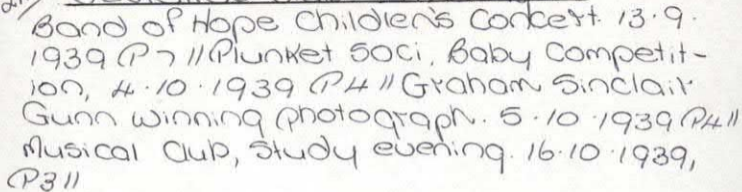 Band of Hope Children's Concert. 13.9.
1939 P7 // Plunket Soci. Baby Competit-
ion, 4.10.1939 P4 // Graham Sinclair
Gunn winning photograph. 5.10.1939 P4 //
Musical Club, Study evening. 16.10.1939,
P3 //